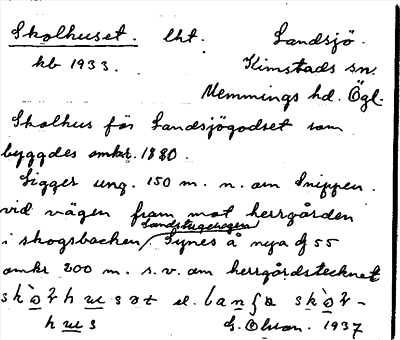 Skolhuset. lht. Landsjö.
kb 1933. Kimstads sn.
Memmings hd. Ögl.
Skolhus för Landsjögodset som
byggdes omkr. 1880.
Ligger ung. 150 m. n. om Snippen.
vid vägen fram mot herrgården
Landstugehagen
i skogsbacken Synes å nya
omkr 200 m. s.v. om herrgårdstecknet
el.
G. Olson. 1937